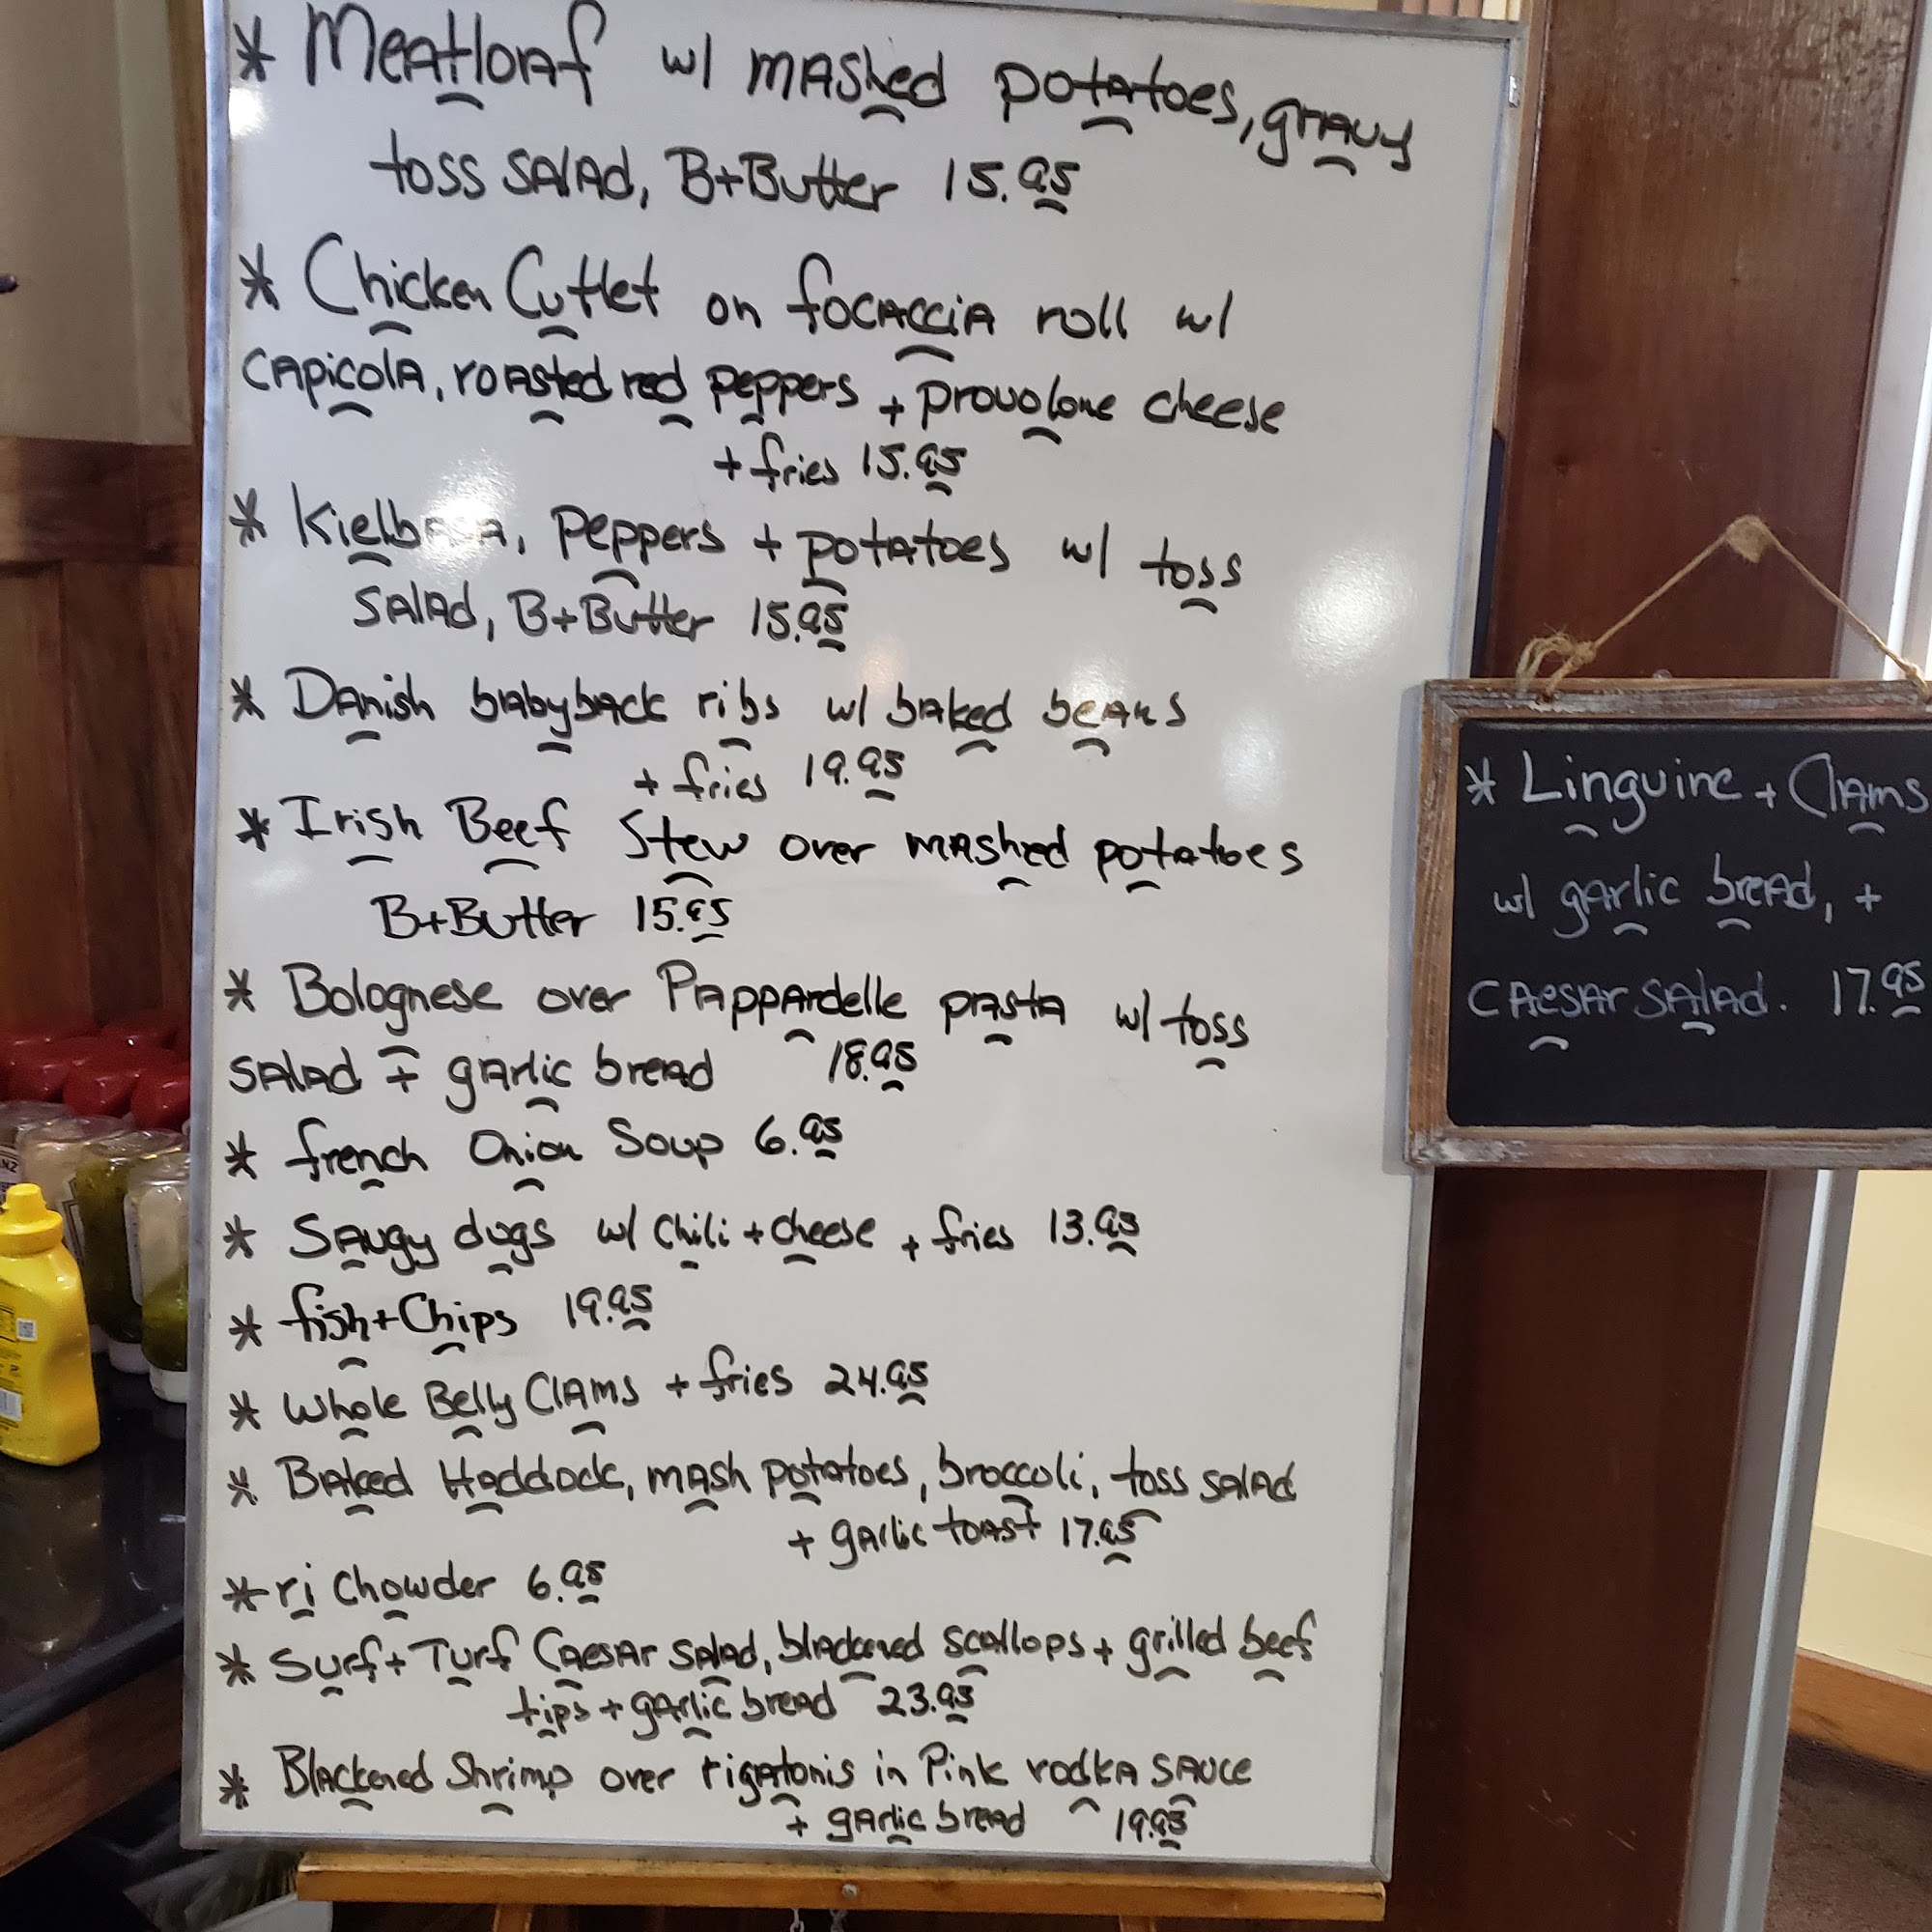 * Meatloaf w/ mashed potatoes, gravy
toss salad, B+Butter 15.95
* Chicken Cutlet on focaccia roll w/
capicola, roasted red peppers + provolone cheese
+ fries 15.95
* Kielbasa, peppers + potatoes w/ toss
salad, B+Butter 15.95
* Danish babyback ribs w/ baked beans
+ fries 19.95
* Irish Beef Stew over mashed potatoes
B+Butter 15.95
* Bolognese over Pappardelle pasta w/ toss
salad + garlic bread 18.95
* french Onion Soup 6.95
* Saugy dugs w/ Chili + cheese + fries 13.95
* fish + Chips 19.95
* Whole Belly Clams + fries 24.95
* Baked Haddock, mash potatoes, broccoli, toss salad
+ garlic toast 17.95
* ri Chowder 6.95
* Surf + Turf Caesar salad, blackened scallops + grilled beef
tips + garlic bread 23.95
* Blackened Shrimp over rigatonis in Pink vodka sauce
+ garlic bread 19.95
* Linguine + Clams
w/ garlic bread, +
Caesar salad. 17.95